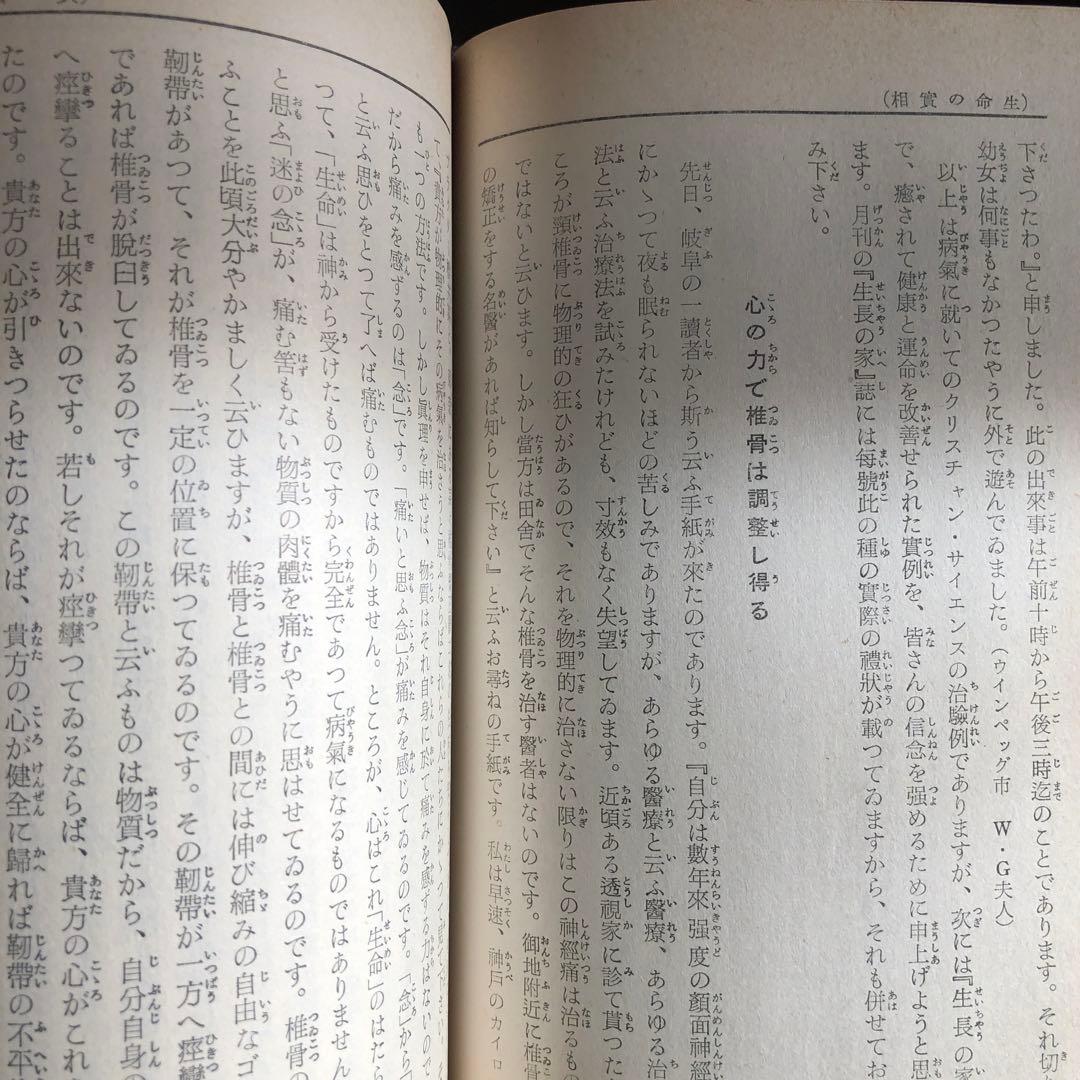 (相實の命生)
下さつたわ。』と申しました。此の出來事は午前十時から午後三時迄のことであります。それ切
幼女は何事もなかつたやうに外で遊んでゐました。(ウインペッグ市 W・G夫人)
以上は病氣に就いてのクリスチャン・サイエンスの治驗例でありますが、次には『生長の家
で、癒されて健康と運命を改善せられた實例を、皆さんの信念を强めるために申上げようと思
ます。月刊の『生長の家』誌には每號此の種の實際の禮狀が載つてゐますから、それも併せてお
み下さい。
心の力で椎骨は調整し得る
先日、岐阜の一讀者から斯う云ふ手紙が來たのであります。『自分は數年來强度の顏面神經
にかゝつて夜も眠られないほどの苦しみでありますが、あらゆる醫療と云ふ醫療、あらゆる治
法と云ふ治療法を試みたけれども、寸效もなく失望してゐます。近頃ある透視家に診て貰つた
ころが頸椎骨に物理的の狂ひがあるので、それを物理的に治さない限りはこの神經痛は治るも
ではないと云ひます。しかし當方は田舍でそんな椎骨を治す醫者はないのです。御地附近に椎骨
の矯正をする名醫があれば知らして下さい』と云ふお尋ねの手紙です。私は早速、神戶のカイロ
も一つの方法です。しかし眞理を申せば、物質はそれ自身に於て痛みを感ずる力はないので
だから痛みを感ずるのは「念」です。「痛いと思ふ念」が痛みを感じてゐるのです。「念」から「
と云ふ思ひをとつて了へば痛むものではありません。ところが、心はこれ「生命」のはたら
つて、「生命」は神から受けたものですから完全であつて病氣になるものではありません
と思ふ「迷の念」が、痛む筈もない物質の肉體を痛むやうに思はせてゐるのです。椎骨の
ふことを此頃大分やかましく云ひますが、椎骨と椎骨との間には伸び縮みの自由なゴ
靭帶があつて、それが椎骨を一定の位置に保つてゐるのです。その靭帶が一方へ痙攣
であれば椎骨が脫臼してゐるのです。この靭帶と云ふものは物質だから、自分自身の
へ痙攣ることは出來ないのです。若しそれが痙攣つてゐるならば、貴方の心がこれ
たのです。貴方の心が引きつらせたのならば、貴方の心が健全に歸れば靭帶の不平